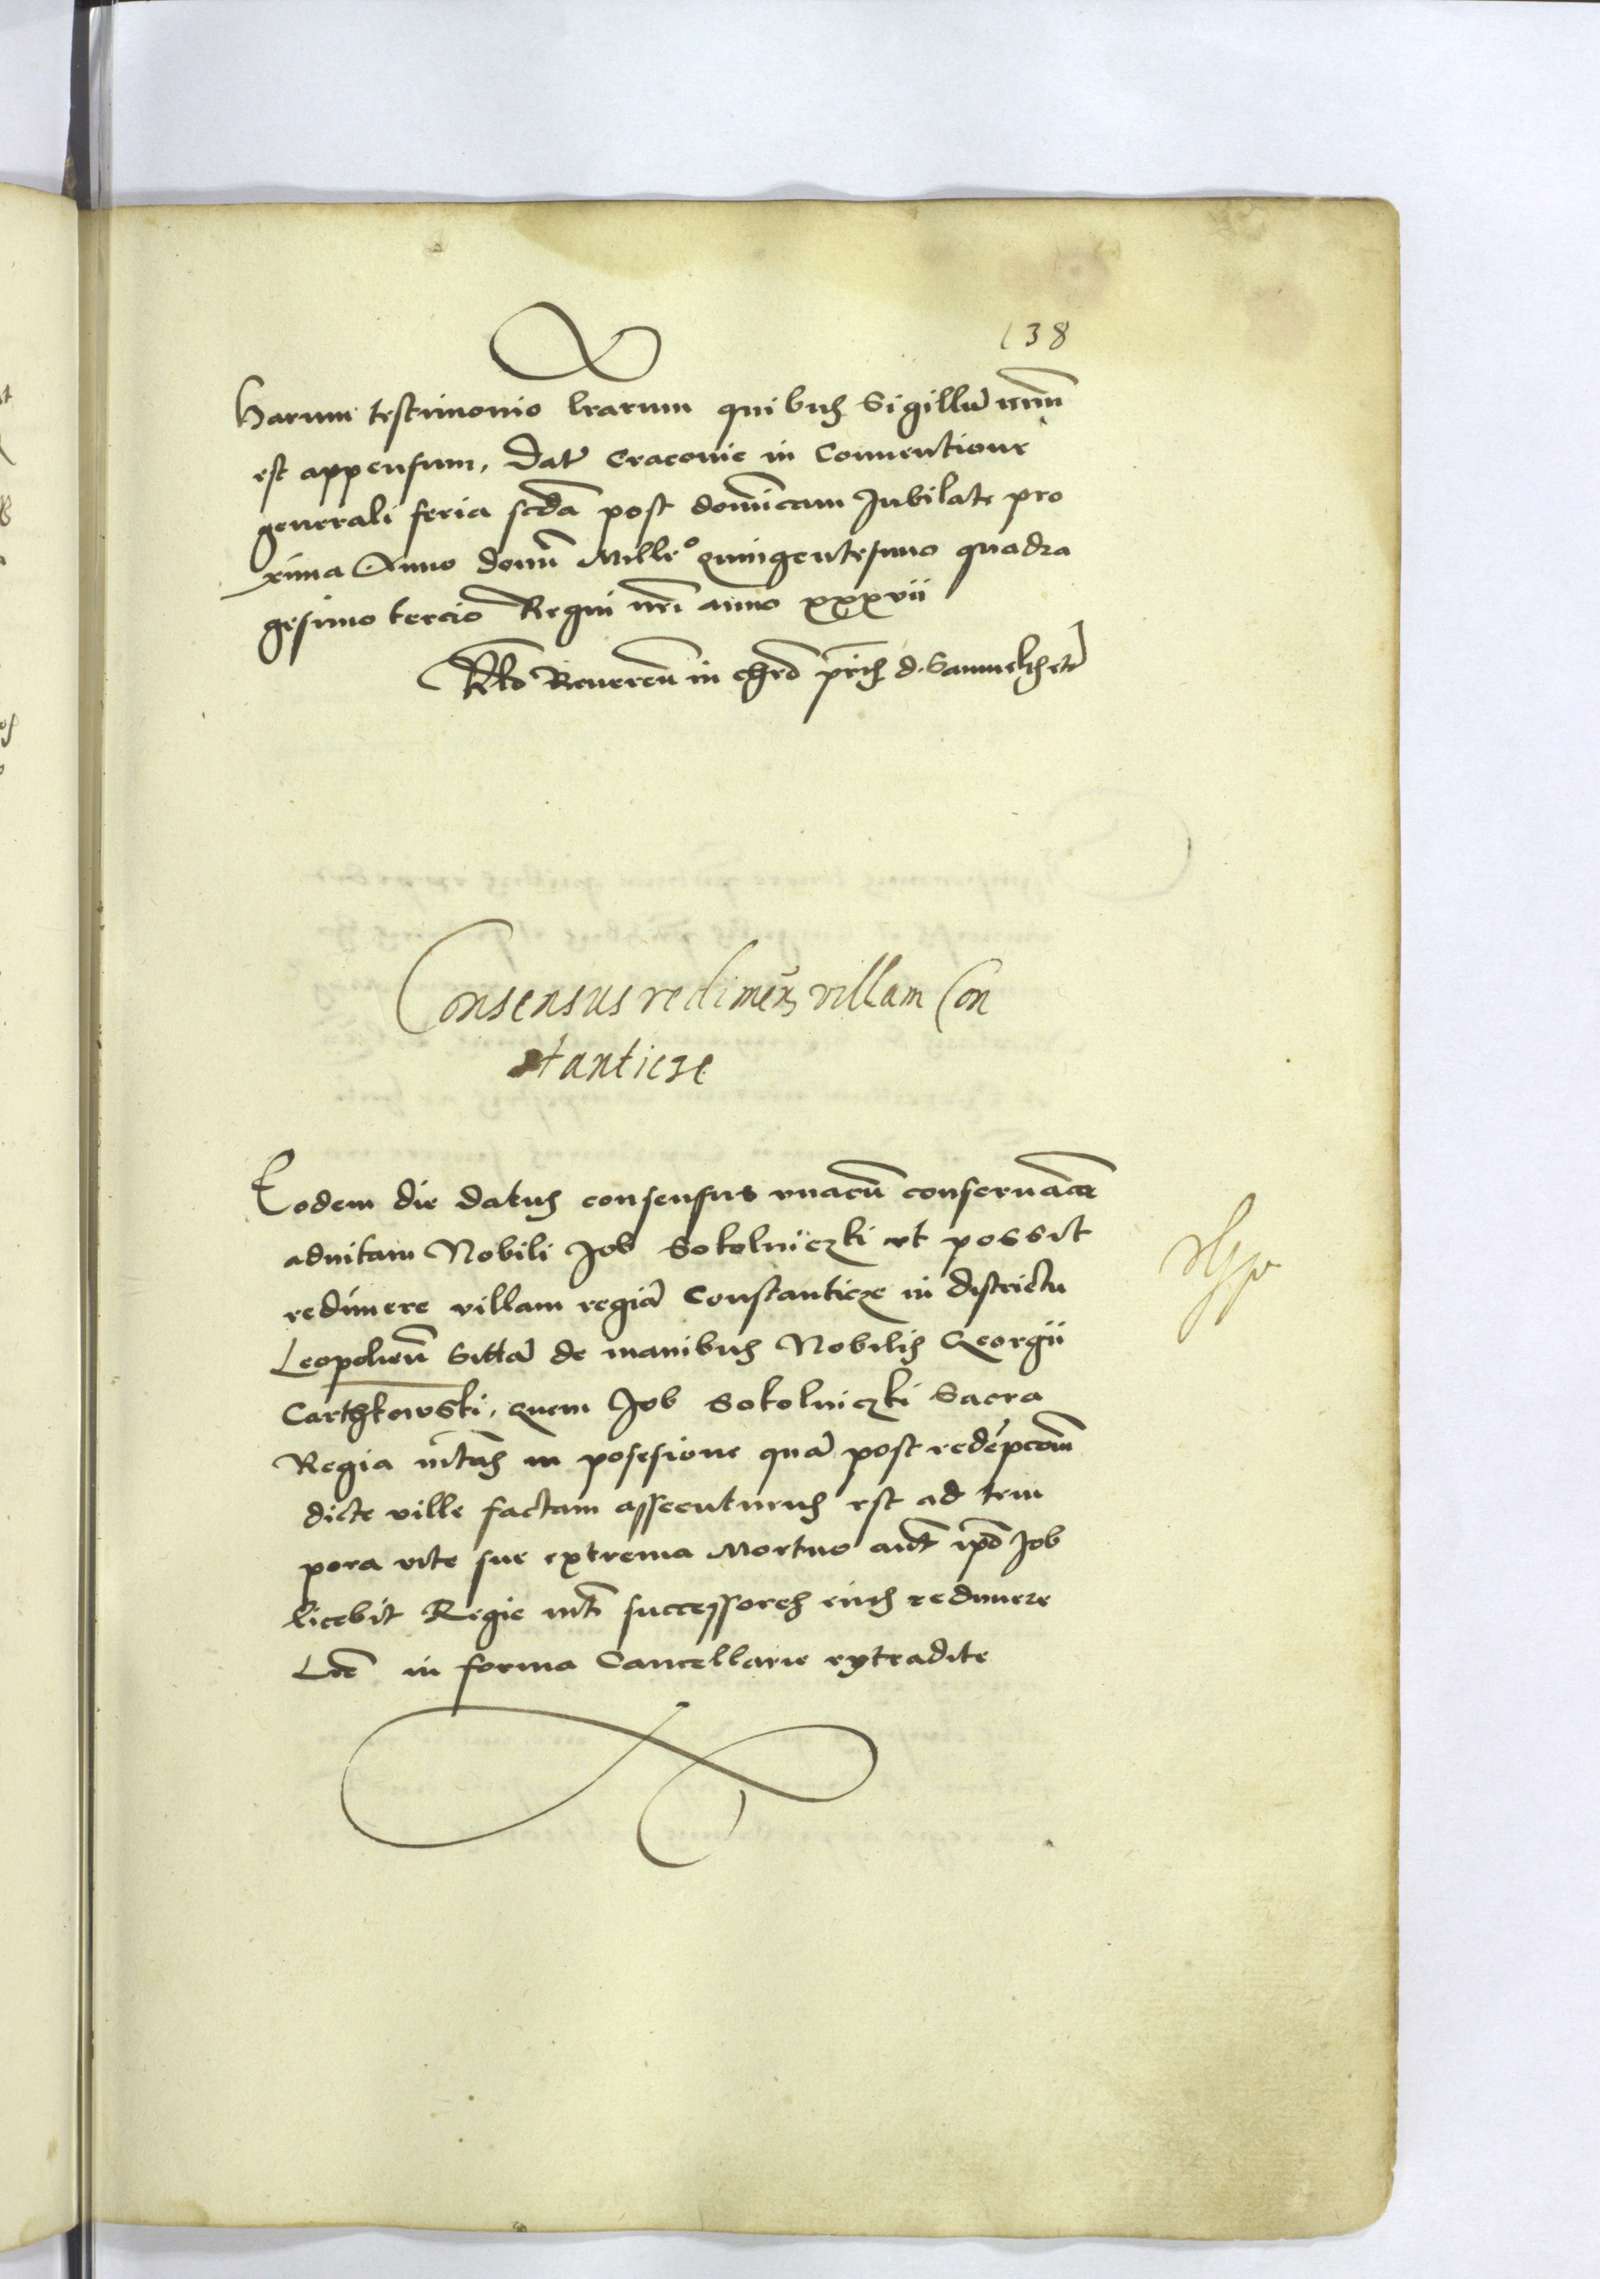 138
Harum testimonio lrarum quibus Sigillu nrm
est appensum, Dat Cracovie in Conventione
generali feria scda post dominicam Jubilate pro
xima Anno domi Mille° quingentesimo quadra
gesimo tercio Regni nri anno xxxvii
Rlo Reveren in chro pris d. Samuelis etc
Consensus redimen villam Con
stanticze
Eodem die datus consensus unacu conservacioe
advitam Nobili Job Sokolniczki ut possit
redimere villam regia Constanticze in districtu
Leopolien Sitta de manibus Nobilis Georgii
Carthkowski, quem Job Sokolniczki Sacra
Regia mtas in posesione qua post redepcom
dicte ville factam assecuturus est ad tem
pora vite sue extrema Mortuo aut ipo Job
licebit Regie mti successores eius redimere
Lre in forma Cancellarie extradite